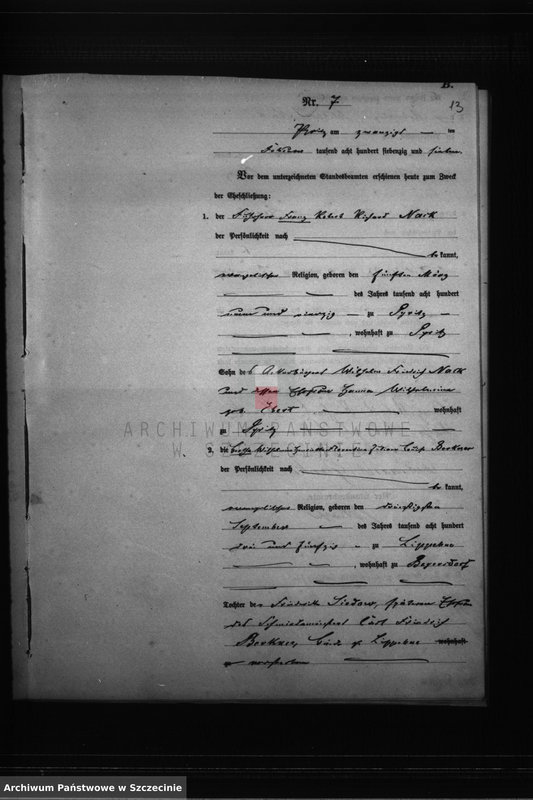 B.
13
Nr. 7
Pyritz am zwanzigsten im
Februar tausend acht hundert siebenzig und sieben
Vor dem unterzeichneten Standesbeamten erschienen heute zum Zweck
der Eheschließung:
1. der Franz Robert Richard Nack
der Persönlichkeit nach
be kannt,
evangelischer Religion, geboren den fünften März
des Jahres tausend acht hundert
neun und vierzig zu Pyritz
, wohnhaft zu Pyritz
Sohn des Ackerbürgers Wilhelm Friedrich Nack
und dessen Ehefrau Hanna Wilhelmine
geb. Ebert wohnhaft
zu Pyritz
ARCHIWUM PAŃSTWOWE
W SZCZECINIE
2. die Wilhelmine Berkner
der Persönlichkeit nach
be kannt,
evangelischer Religion, geboren den dreißigsten
September des Jahres tausend acht hundert
drei und fünfzig zu Lippehne
, wohnhaft zu Beyersdorf
Tochter der Friederike Siedow, späteren Ehefrau
des Schmiedemeisters Carl Friedrich
Berkner, beide zu Lippehne wohnhaft
verstorben
Archiwum Państwowe w Szczecinie